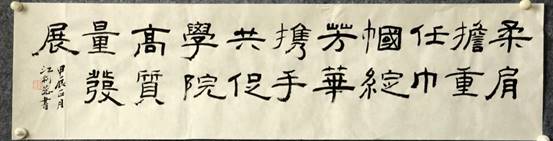 柔肩
擔重
任巾
幗綻
芳華
携手
共促
學院
高質
量發
展
甲辰正月
江書